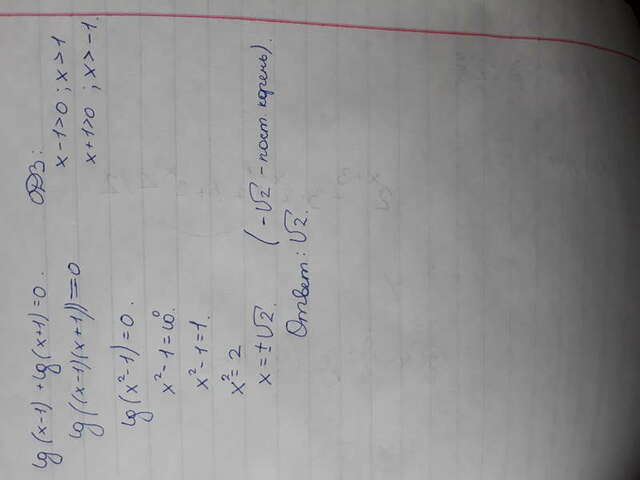 lg(x-1) + lg(x+1) = 0.
ОДЗ:
x-1>0 ; x>1
x+1>0 ; x>-1.
lg((x-1)(x+1)) = 0
lg(x²-1) = 0.
x²-1 = 10⁰.
x²-1 = 1.
x² = 2
x = ±√2. (-√2 - пост. корень).
Ответ: √2.